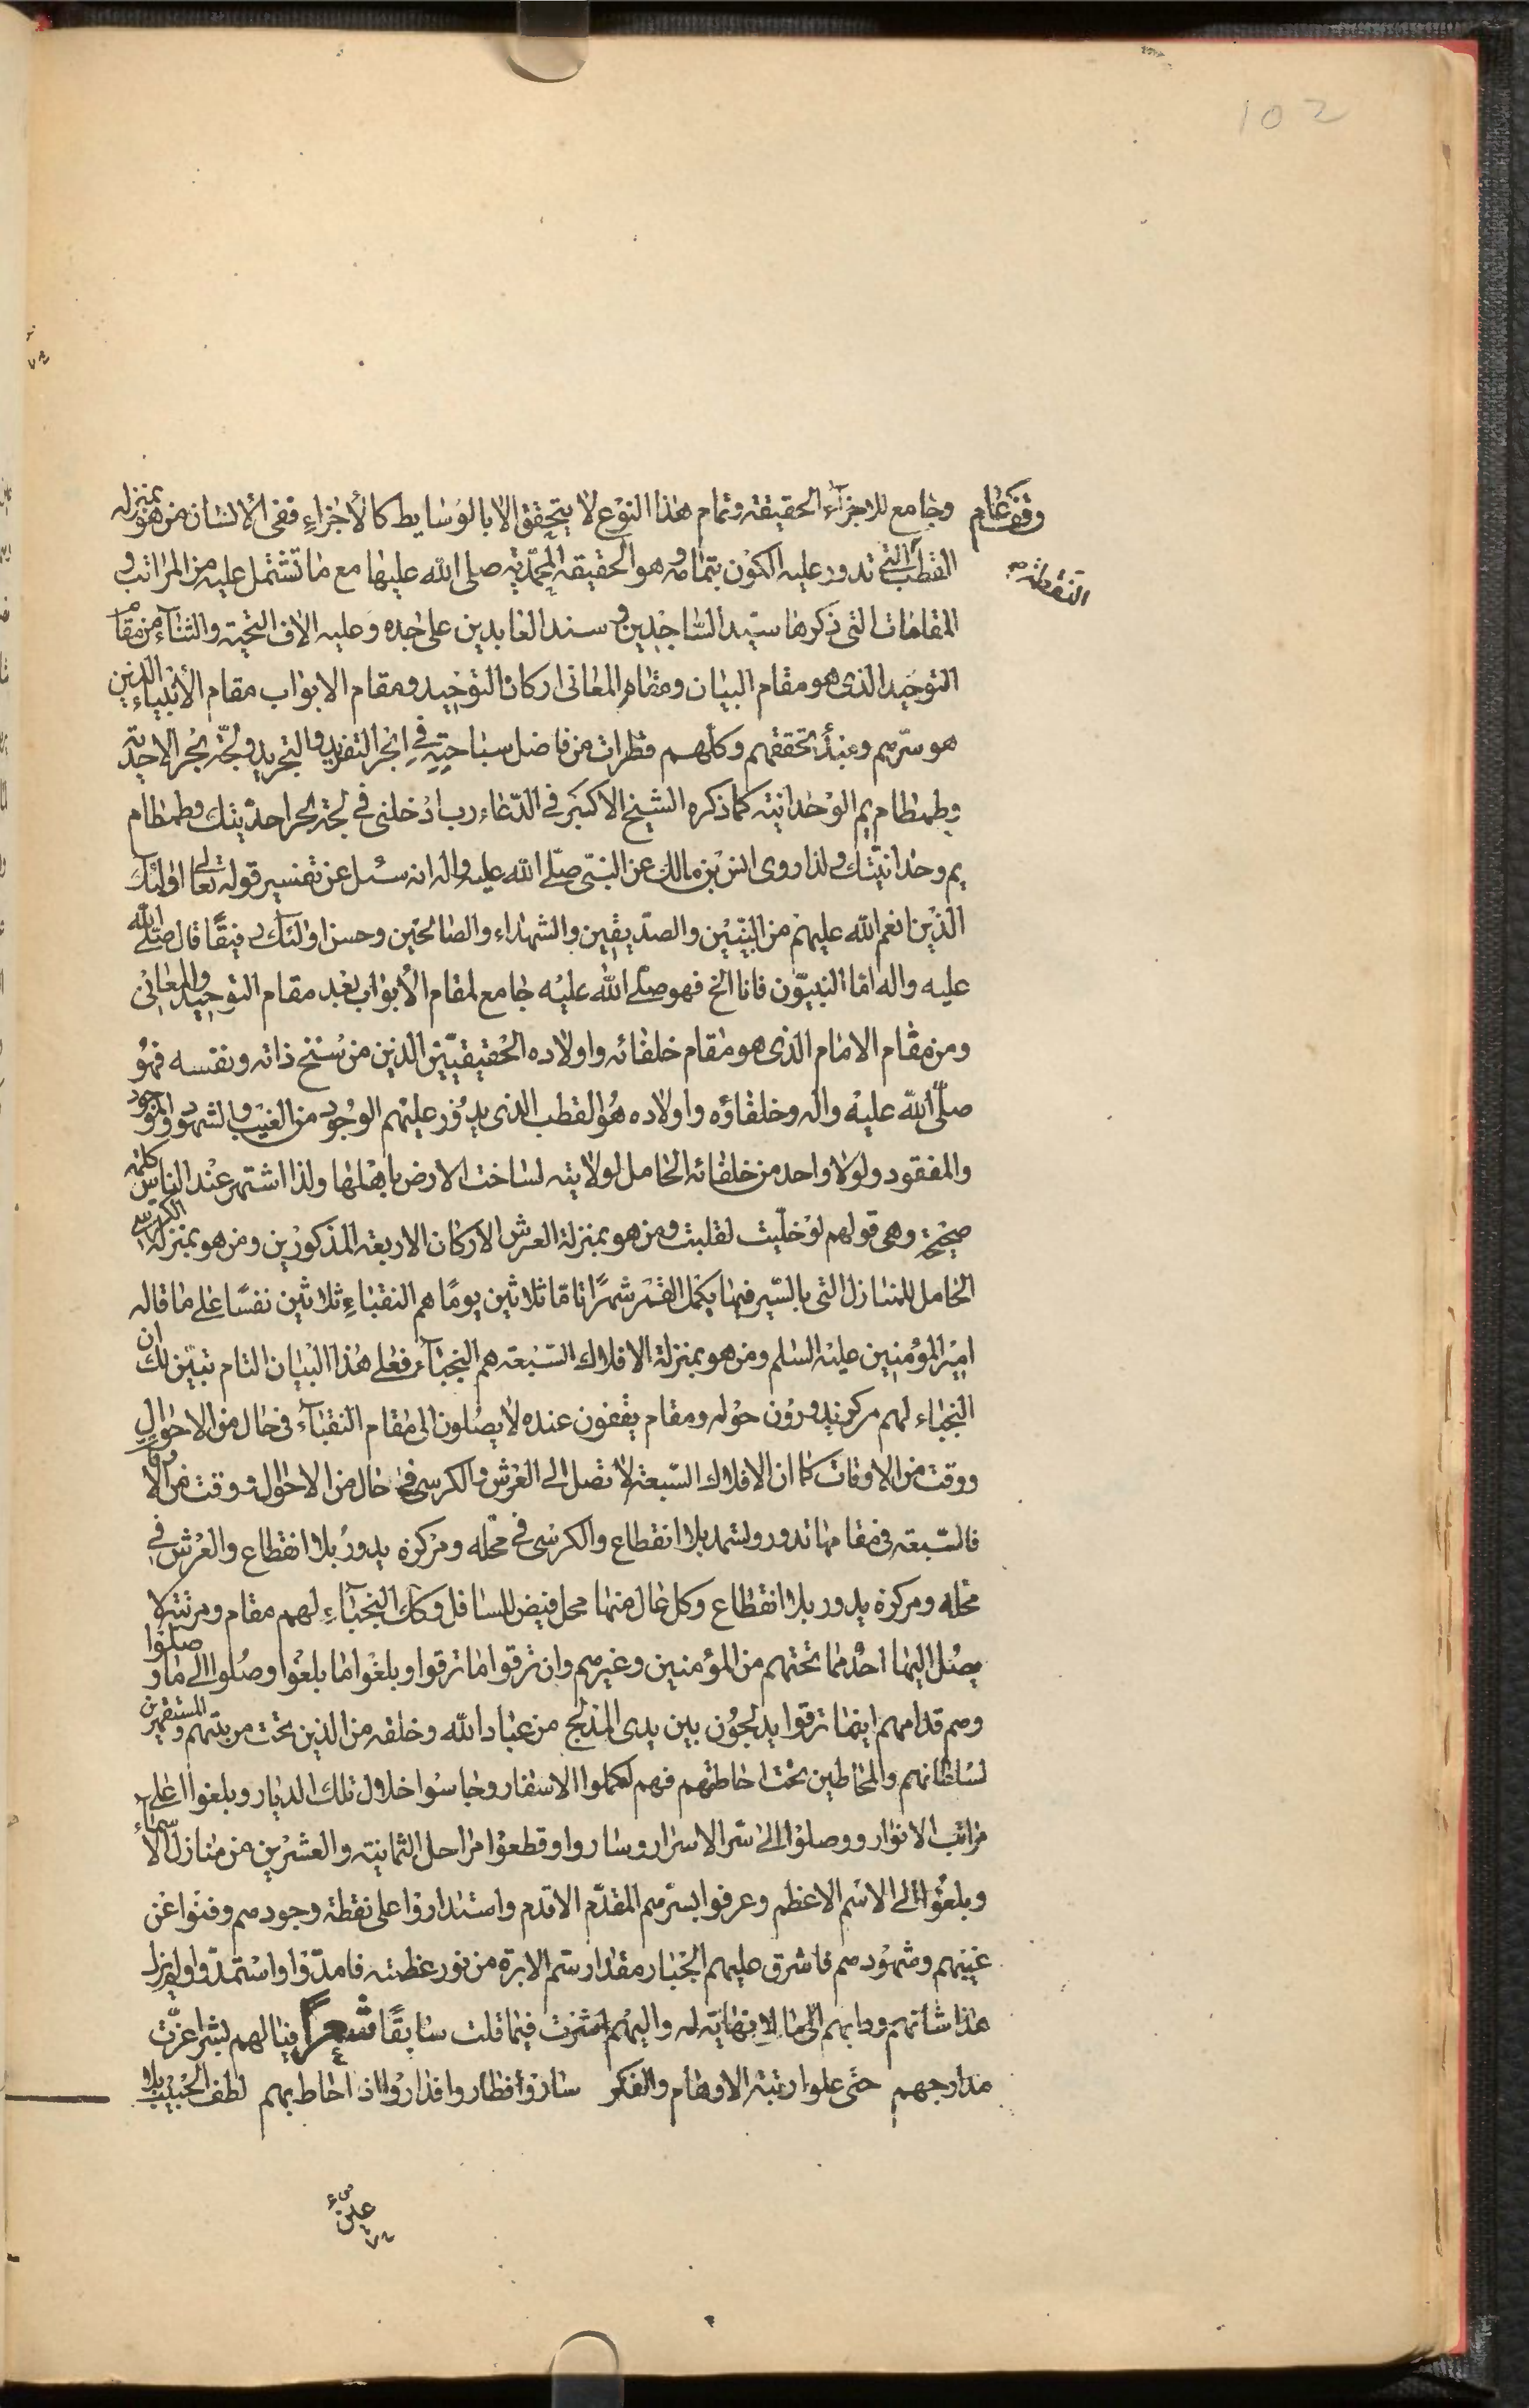 102
وجامع للاجزآء الحقيقة وتمام هذا النوع لا يتحقق الا بالوسايط كالأجزاء ففى الانسان من هو بمنزلة
القطب التى تدور عليه الكون بتمامه وهو الحقيقة المحمّدية صلى الله عليها مع ما تشتمل عليه من المراتب و
المقامات التى ذكرها سيّد السّاجدين و سند العابدين على جده وعليه الاف التحية والثنآء من مقام
التوحيد الذى هو مقام البيان ومقام المعانى اركان التوحيد ومقام الابواب مقام الأنبياء الذين
هو سرّهم ومبدأ تحققهم وكلّهم قطرات من فاضل سباحتِهِ فى ابحر التفريد والتجريد ولجّة بحر الاحدية
وطمطام يم الوحدانية كما ذكره الشيخ الاكبر فى الدّعاء رب ادخلنى فى لجّة بحر احديّتك وطمطام
يم وحدانيّتك ولذا روى انس بن مالك عن النبىّ صلّى الله عليه واله انه سئل عن تفسير قوله تعالى اولئك
الذين انعم الله عليهم من النبيّين والصدّيقين والشهداء والصالحين وحسن اولئك رفيقًا قال صلّى الله
عليه واله امّا النبيّون فانا الخ فهو صلّى الله عليه جامع لمقام الأبواب بعد مقام التوحيد والمعانى
ومن مقام الامام الذى هو مقام خلفائه واولاده الحقيقيّين الذين من سنخ ذاته ونفسه فهو
صلّى الله عليه واله وخلفاؤه واولاده هو القطب الذى يدور عليهم الوجود من الغيب والشهود والموجود
والمفقود ولولا واحد من خلفائه الحامل لولايته لساخت الارض باهلها ولذا اشتهر عند الناس كلمة
صحيحة وهى قولهم لو خليت لقلبت ومن هو بمنزلة العرش الاركان الاربعة المذكورين ومن هو بمنزلة الكرسى
الحامل للمنازل التى بالسّير فيها يكمل القمر شهرًا تامّا ثلاثين يومًا هم النقباء ثلاثين نفسًا على ما قاله
امير المؤمنين عليه السلم ومن هو بمنزلة الافلاك السّبعة هم النجبآء فعلى هذا البيان التام تبيّن لك ان
النجباء لهم مركز يدورون حوله ومقام يقفون عنده لا يصلون الى مقام النقبآء فى حال من الاحوال
ووقت من الاوقات كما ان الافلاك السّبعة لا تصل الى العرش والكرسى فى حال من الاحوال ووقت من الاوقات
فالسّبعة فى مقامها تدور وتستمد بلا انقطاع والكرسى فى محله ومركزه يدور بلا انقطاع والعرش فى
محله ومركزه يدور بلا انقطاع وكل عال منها محل فيض للسافل وكك النجبآء لهم مقام ومرتبة لا
يصل اليها احد مما تحتهم من المؤمنين وغيرهم وان ترقوا ما ترقوا وبلغوا ما بلغوا وصلوا الى ما وصلوا
وهم قدامهم اينما ترقوا يدلجون بين يدى المدلج من عباد الله وخلقه من الذين تحت مرتبتهم و المستقهرين
لسلطانهم والمحاطين تحت احاطتهم فهم كملوا الاسفار وجاسوا خلال تلك الديار وبلغوا اعلى
مراتب الانوار ووصلوا الى سّر الاسرار وساروا وقطعوا مراحل الثمانية والعشرين من منازل الأسماء
وبلغوا الى الاسم الاعظم وعرفوا بسرّهم المقدّم الاقدم واستداروا على نقطة وجودهم وفنوا عن
غيبهم وشهودهم فاشرق عليهم الجبار مقدار سّم الابرة من نور عظمته فامدّوا واستمدّوا ولم يزل
هذا شانهم ودابهم الى ما لا نهاية له واليهم اشرت فيما قلت سابقًا شعرًا فيا لهم بشر اعزّت
مدارجهم حتى علوا رتبة الاوهام والفكر ساروا فطاروا فداروا اذ احاط بهم لطف الحبيب بلا